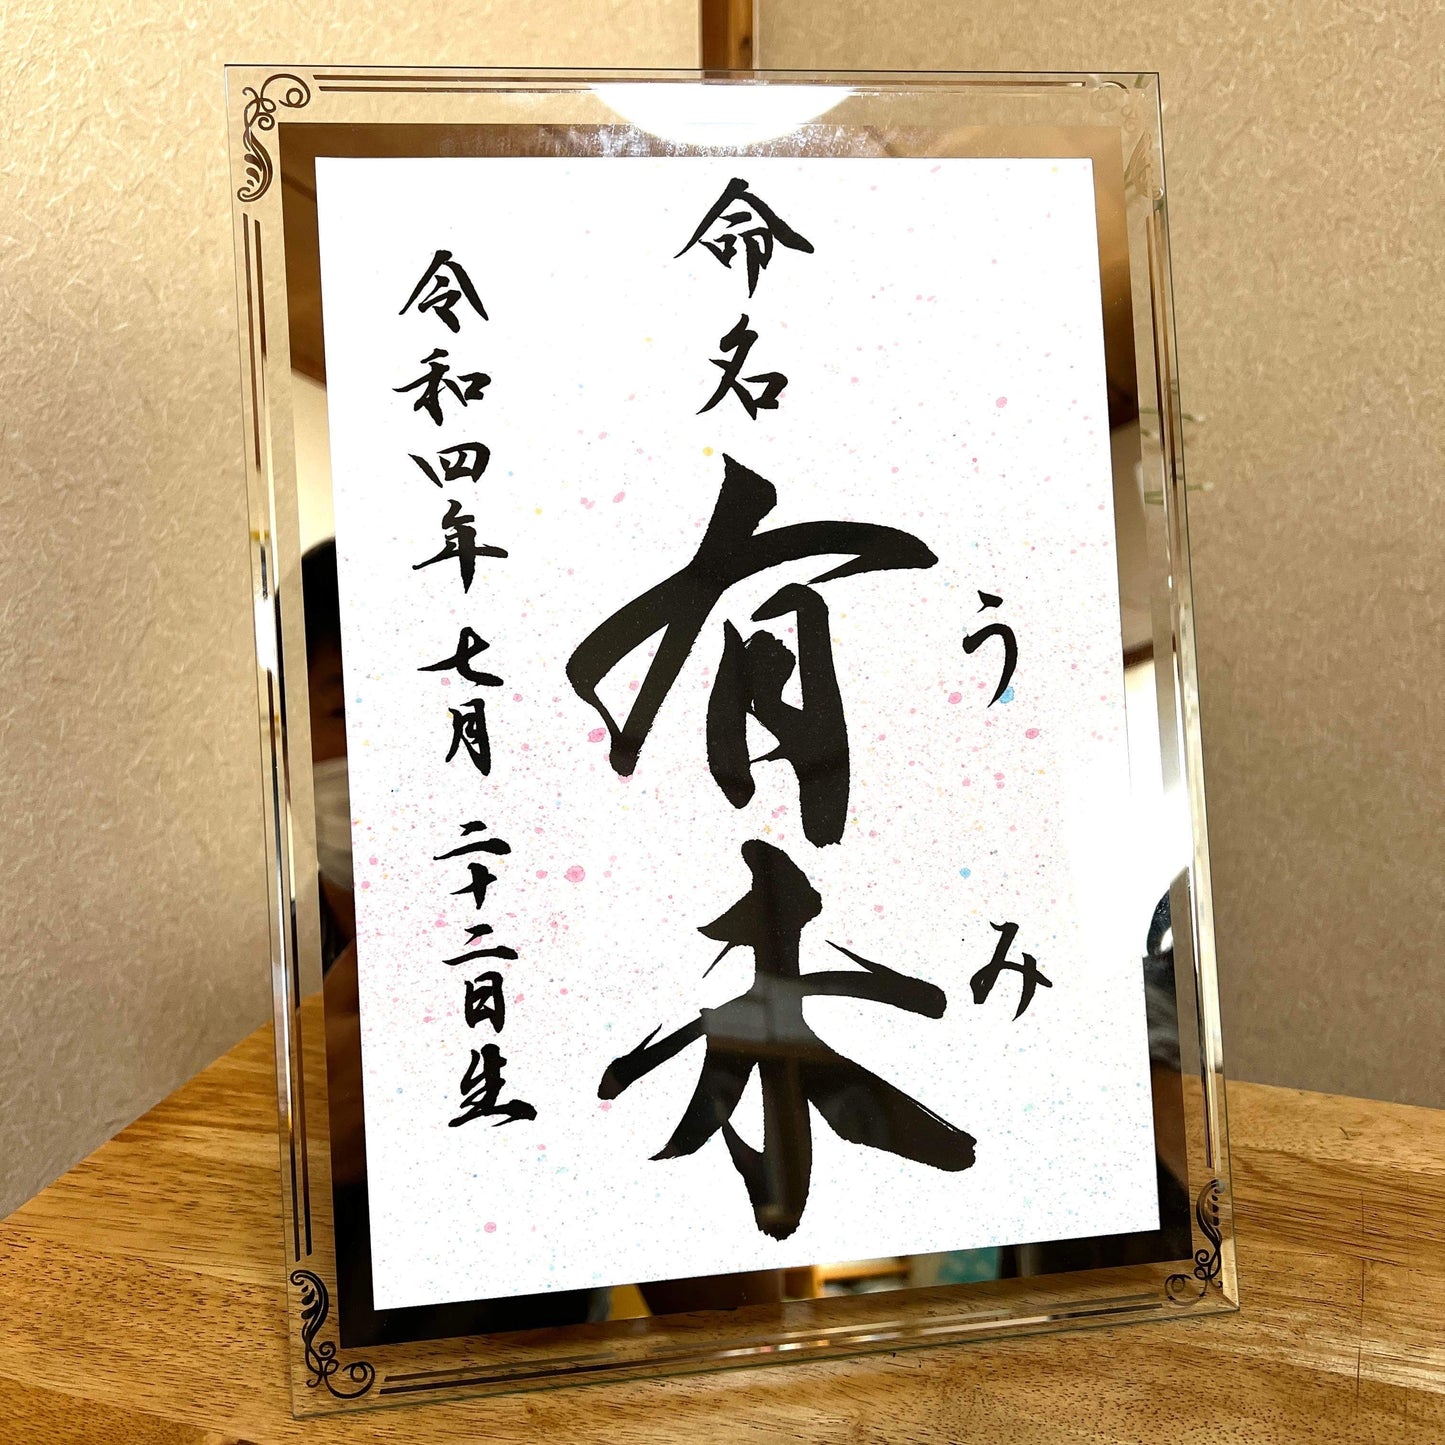 命名
有未
うみ
令和四年 七月 二十二日生